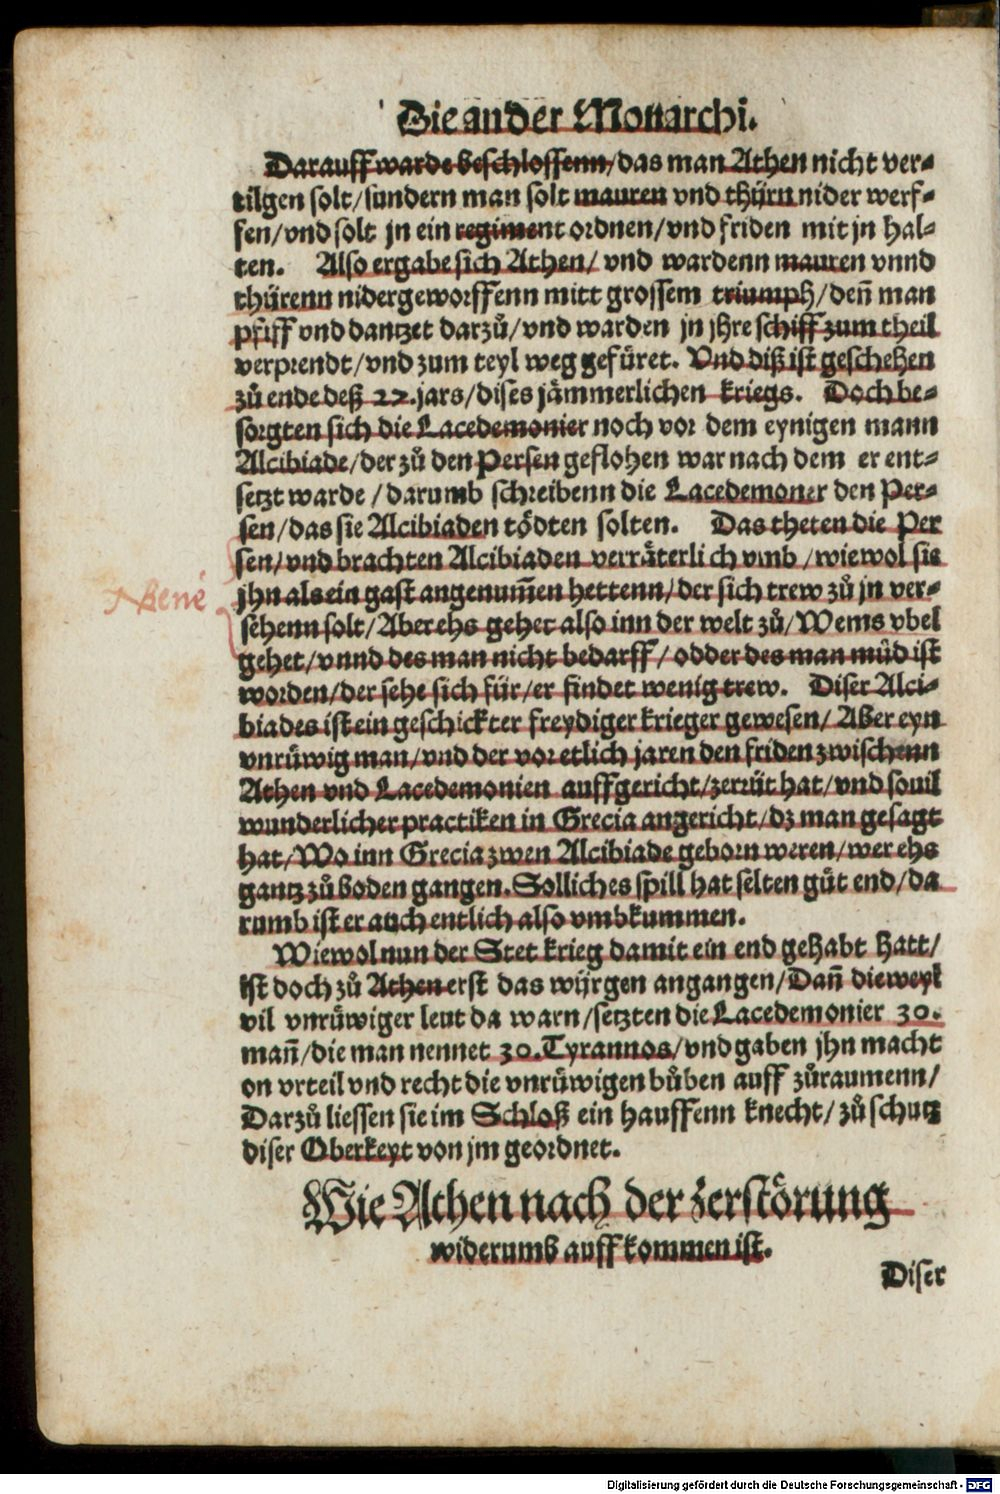 Die ander Monarchi.
Darauff warde beschlossenn/das man Athen nicht ver-
tilgen solt/sundern man solt mauren vnd thürn nider werf-
fen/vnd solt jn ein regiment ordnen/vnd friden mit jn hal-
ten. Also ergabe sich Athen/ vnd wardenn mauren vnnd
thürenn nidergeworffenn mitt grossem triumph/deñ man
pfiff vnd dantzet darzů/vnd warden jn jhre schiff zum theil
verprendt/vnd zum teyl weg gefüret. Vnd diß ist geschehen
zů ende deß 27.jars/dises jämmerlichen kriegs. Doch be-
sorgten sich die Lacedemonier noch vor dem eynigen mann
Alcibiade/der zů den Persen geflohen war nach dem er ent-
setzt warde /darumb schreibenn die Lacedemoner den Per-
sen/das sie Alcibiaden tödten solten. Das theten die Per
sen/vnd brachten Alcibiaden verräterlich vmb/wiewol sie
jhn als ein gast angenum̃en hettenn/der sich trew zů jn ver-
sehenn solt/Aber ehs gehet also inn der welt zů/Wems vbel
gehet/vnnd des man nicht bedarff/ odder des man müd ist
worden/der sehe sich für/er findet wenig trew. Diser Alci-
biades ist ein geschickter freydiger krieger gewesen/Aber eyn
vnrüwig man/vnd der vor etlich jaren den friden zwischenn
Athen vnd Lacedemonien auffgericht/zerrüt hat/vnd souil
wunderlicher practiken in Grecia angericht/dz man gesagt
hat/Wo inn Grecia zwen Alcibiade geborn weren/wer ehs
gantz zů boden gangen. Solliches spill hat selten güt end/da
rumb ist er auch entlich also vmbkummen.
Wiewol nun der Stet krieg damit ein end gehabt hatt/
ist doch zů Athen erst das wijrgen angangen/Dañ die weyl
vil vnrüwiger leut da warn/setzten die Lacedemonier 30.
mañ/die man nennet 30.Tyrannos/vnd gaben jhn macht
on vrteil vnd recht die vnrüwigen bůben auff zůraumenn/
Darzů liessen sie im Schloß ein hauffenn knecht/zů schutz
diser Oberkeyt von jm geordnet.
Wie Athen nach der zerstörung
widerumb auff kommen ist.
Diser
Bene
Digitalisierung gefördert durch die Deutsche Forschungsgemeinschaft - DFG